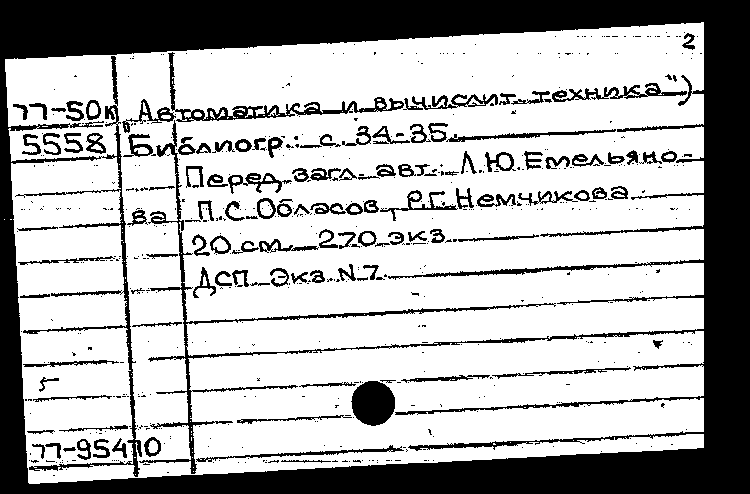 2
77-50к Автоматика и вычислит. техника")
5558 "Библиогр.: с. 34-35.
Перед загл. авт.: Л.Ю. Емельяно-
ва, П.С. Обласов, Р.Г. Немчикова.
20 см. 270 экз.
ДСП. Экз. N 7.
5
77-95470